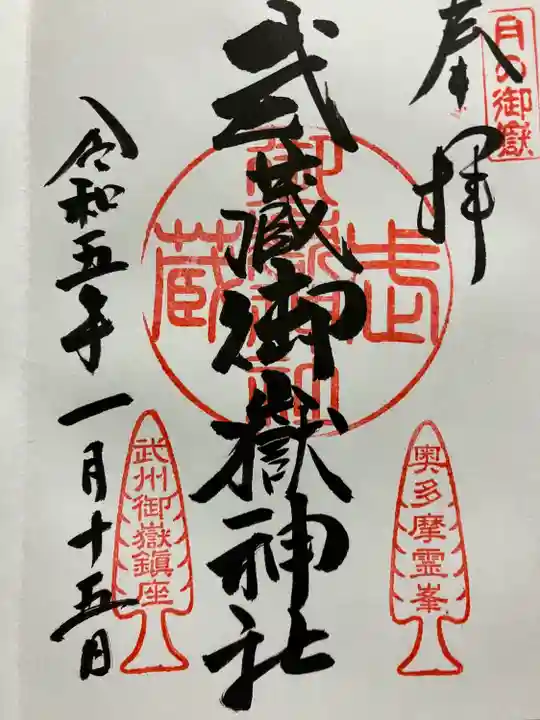 月の御嶽
奉拝
奥多摩霊峯
武蔵御嶽神社
武蔵
令和五年一月十五日
武州御嶽鎮座